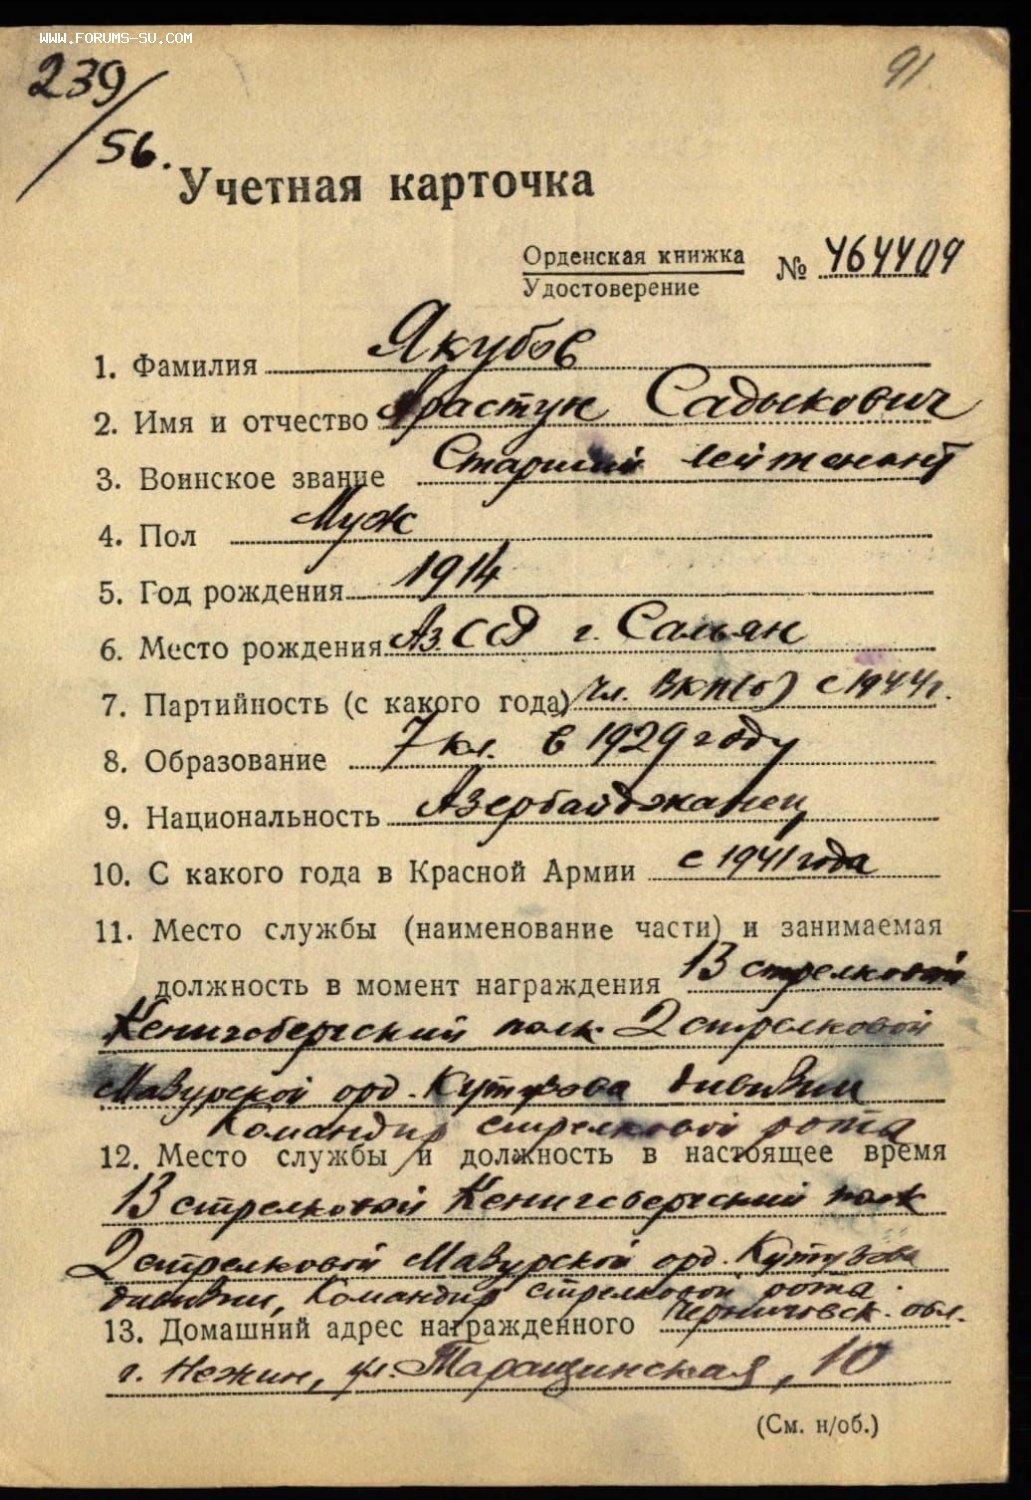 WWW.FORUMS-SU.COM
239/56.
91
Учетная карточка
Орденская книжка
Удостоверение
№ 464409
1. Фамилия Якубов
2. Имя и отчество Арастун Садыкович
3. Воинское звание Старший лейтенант
4. Пол Муж
5. Год рождения 1914
6. Место рождения Аз.ССР г. Сальян
7. Партийность (с какого года) Чл. ВКП(б) с 1944г.
8. Образование 7 кл. в 1929 году
9. Национальность Азербайджанец
10. С какого года в Красной Армии с 1941 года
11. Место службы (наименование части) и занимаемая
должность в момент награждения 13 стрелковой
Кенигсбергский полк 2 стрелковой
Мазурской орд. Кутузова дивизии
Командир стрелковой рота
12. Место службы и должность в настоящее время
13 стрелковой Кенигсбергский полк
2 стрелковой Мазурской орд. Кутузова
дивизии, Командир стрелковой рота.
13. Домашний адрес награжденного Черниговск. обл.
г. Нежин, ул. Таращинская, 10
(См. н/об.)